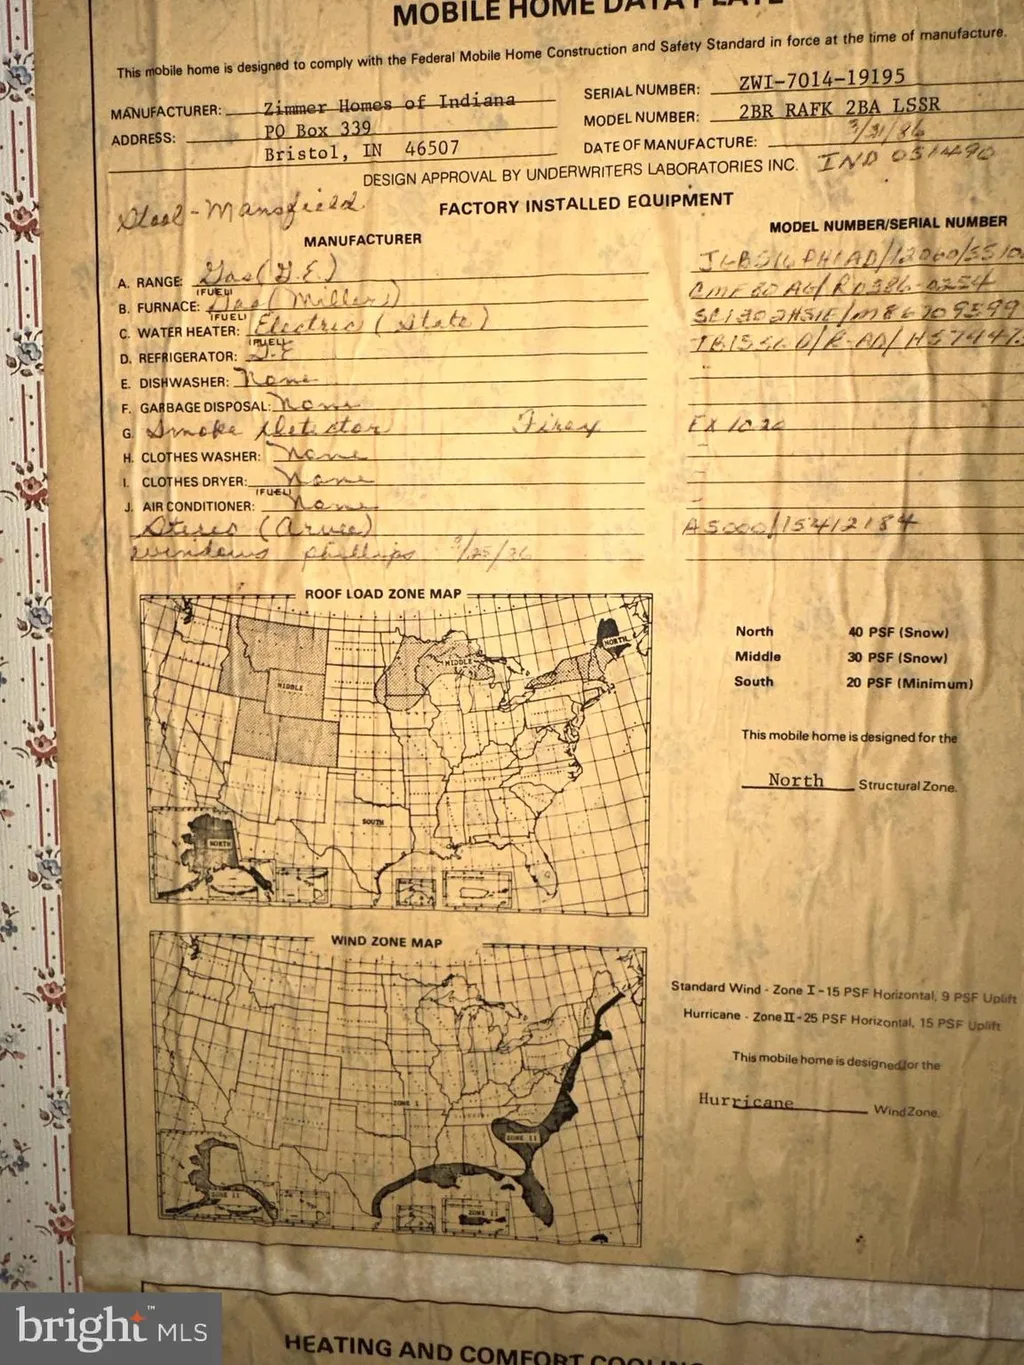 MOBILE HOME DATA PLATE
This mobile home is designed to comply with the Federal Mobile Home Construction and Safety Standard in force at the time of manufacture.
MANUFACTURER: Zimmer Homes of Indiana
ADDRESS: PO Box 339
Bristol, IN 46507
SERIAL NUMBER: ZWI-7014-19195
MODEL NUMBER: 2BR RAFK 2BA LSSR
DATE OF MANUFACTURE: 3/31/86
DESIGN APPROVAL BY UNDERWRITERS LABORATORIES INC. IND 051490
Stool - Mansfield
FACTORY INSTALLED EQUIPMENT
MANUFACTURER
MODEL NUMBER/SERIAL NUMBER
A. RANGE: Gas (G.E.)
(FUEL)
B. FURNACE: Gas (Miller)
(FUEL)
C. WATER HEATER: Electric (State)
(FUEL)
D. REFRIGERATOR: G.E
E. DISHWASHER: None
F. GARBAGE DISPOSAL: None
G. Smoke Detector Firex FX 1020
H. CLOTHES WASHER: None
I. CLOTHES DRYER: None
(FUEL)
J. AIR CONDITIONER: None
Stereo (Arvee) A5000/15412184
Windows phillips
ROOF LOAD ZONE MAP
NORTH
MIDDLE
MIDDLE
SOUTH
NORTH
North 40 PSF (Snow)
Middle 30 PSF (Snow)
South 20 PSF (Minimum)
This mobile home is designed for the
North Structural Zone.
WIND ZONE MAP
ZONE I
ZONE II
ZONE II
ZONE II
Standard Wind - Zone I - 15 PSF Horizontal, 9 PSF Uplift
Hurricane - Zone II - 25 PSF Horizontal, 15 PSF Uplift
This mobile home is designed for the
Hurricane Wind Zone.
HEATING AND COMFORT COOLING
bright™ MLS